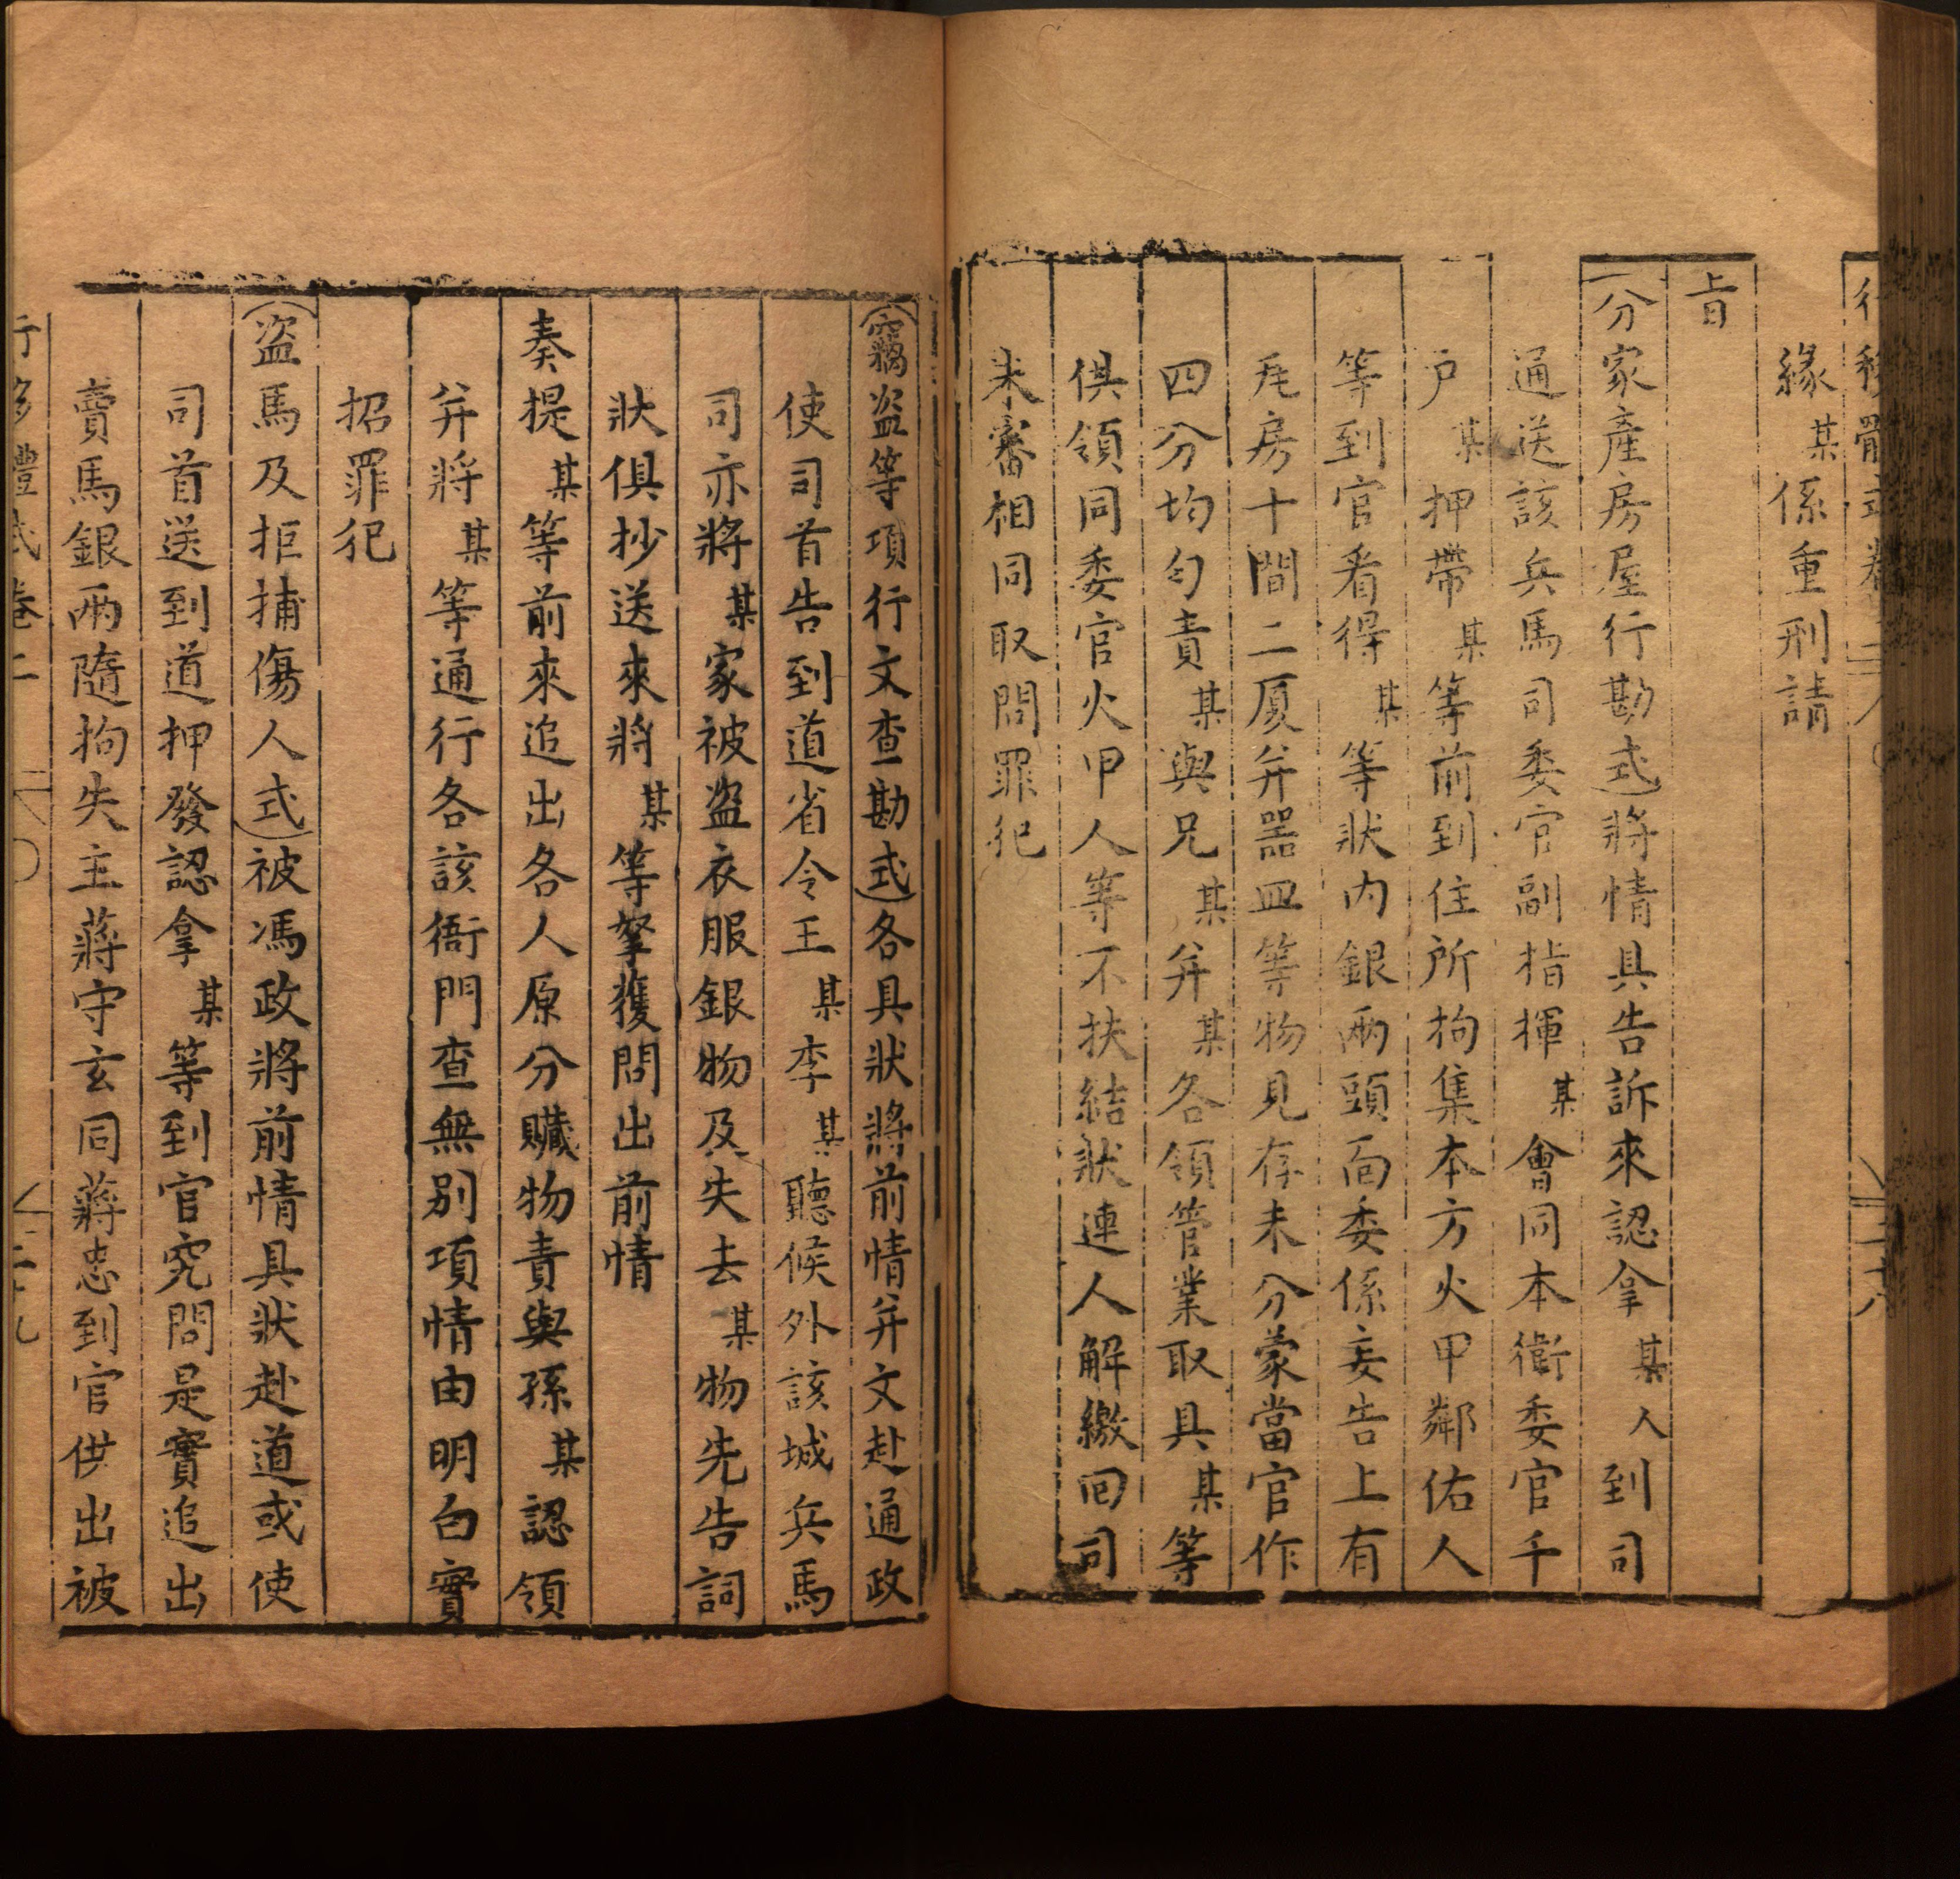 緣某係重刑請
旨
分家產房屋行勘式將情具告訴來認拿某人到司
通送該兵馬司委官副指揮某會同本衛委官千
戶某押帶某等前到住所拘集本方火甲鄰佑人
等到官看得某等狀內銀兩頭面委係妄告上有
房十間二厦并器皿等物見存未分蒙當官作
四分均勻責某與兄某并某各領管業取具某等
俱領同委官火甲人等不扶結狀連人解繳回司
來審相同取問罪犯
竊盗等項行文查勘式各具狀將前情并文赴通政
使司首告到道省令王某李某聽候外該城兵馬
司亦將某家被盗衣服銀物及失去某物先告詞
狀俱抄送來將某等拏獲問出前情
奏提某等前來追出各人原分贓物責與孫某認領
并將某等通行各該衙門查無別項情由明白實
招罪犯
盗馬及拒捕傷人式被馮政將前情具狀赴道或使
司首送到道押發認拿某等到官究問是實追出
賣馬銀兩隨拘失主蔣守玄同蔣忠到官供出被
行移體式卷二
二十九